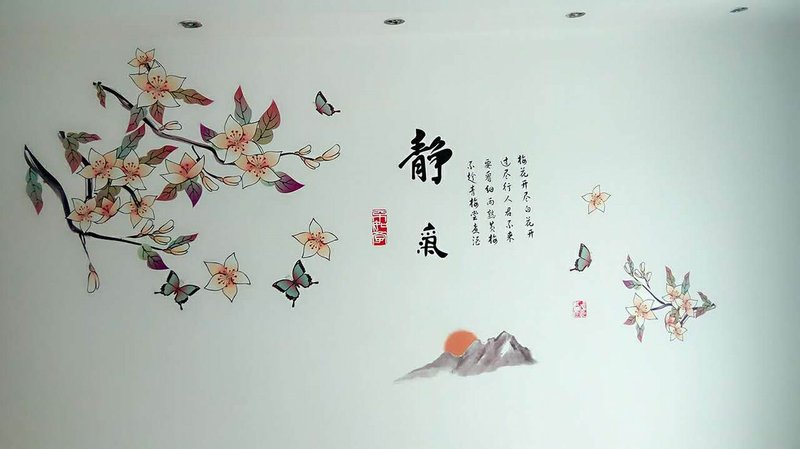 静
氣
梅花开尽白花开
过尽行人君不来
不趁青梅尝煮酒
要看细雨熟黄梅